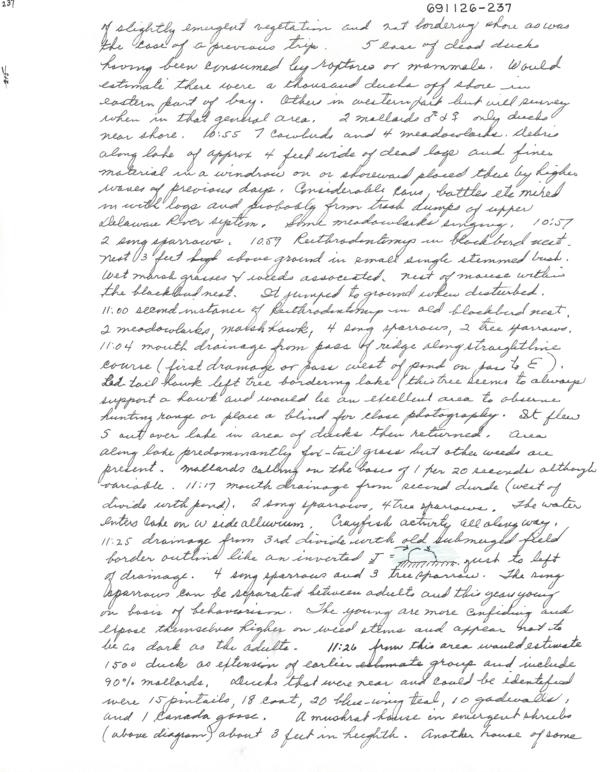 237
691126-237
of slightly emergent vegetation and not bordering shore as was
the case of a previous trip. 5 case of dead ducks
having been consumed by raptures or mammals. Would
estimate there were a thousand ducks off shore in
eastern part of bay. Others in western part but will survey
when in that general area. 2 mallards ♂ & ♀ only ducks
near shore. 10:55 7 Cowbirds and 4 meadowlarks. Debris
along lake of approx 4 feet wide of dead logs and finer
material in a windrow on or shoreward placed there by higher
waves of previous days. Considerable cans, bottles etc mixed
in with logs and probably from trash dumps of upper
Delaware River system. Some meadowlarks singing. 10:57
2 song sparrows. 1059 Reithrodontomys in blackbird nest.
nest 3 feet high above ground in small single stemmed bush.
Wet marsh grasses & weeds associated. nest of mouse within
the blackbird nest. It jumped to ground when disturbed.
11:00 second instance of Reithrodontomys in old blackbird nest.
2 meadowlarks, marsh hawk, 4 song sparrows, 2 tree sparrows.
11:04 mouth drainage from pass of ridge along straightline
course (first drainage or pass west of pond on pass to E).
Red tail hawk left tree bordering lake (this tree seems to always
support a hawk and would be an excellent area to observe
hunting range or place a blind for close photography. It flew
S out over lake in area of ducks then returned. Area
along lake predominantly fox-tail grass but other weeds are
present. mallards calling on the basis of 1 per 20 seconds although
variable. 11:17 mouth drainage from second divide (west of
divide with pond). 2 song sparrows, 4 tree sparrows. The water
enters lake on W side alluvium. Crayfish activity all along way.
11:25 drainage from 3rd divide with old submerged field
border outline like an inverted J = just to left
of drainage. 4 song sparrows and 3 tree sparrow. The song
sparrows can be separated between adults and this years young
on basis of behaviorism. The young are more confiding and
expose themselves higher on weed stems and appear not to
be as dark as the adults. 11:26 from this area would estimate
1500 duck as extension of earlier estimate group and include
90% mallards. Ducks that were near and could be identified
were 15 pintails, 18 coot, 20 blue-wing teal, 10 gadwalls,
and 1 Canada goose. A muskrat house in emergent shrubs
(above diagram) about 3 feet in heighth. Another house of some